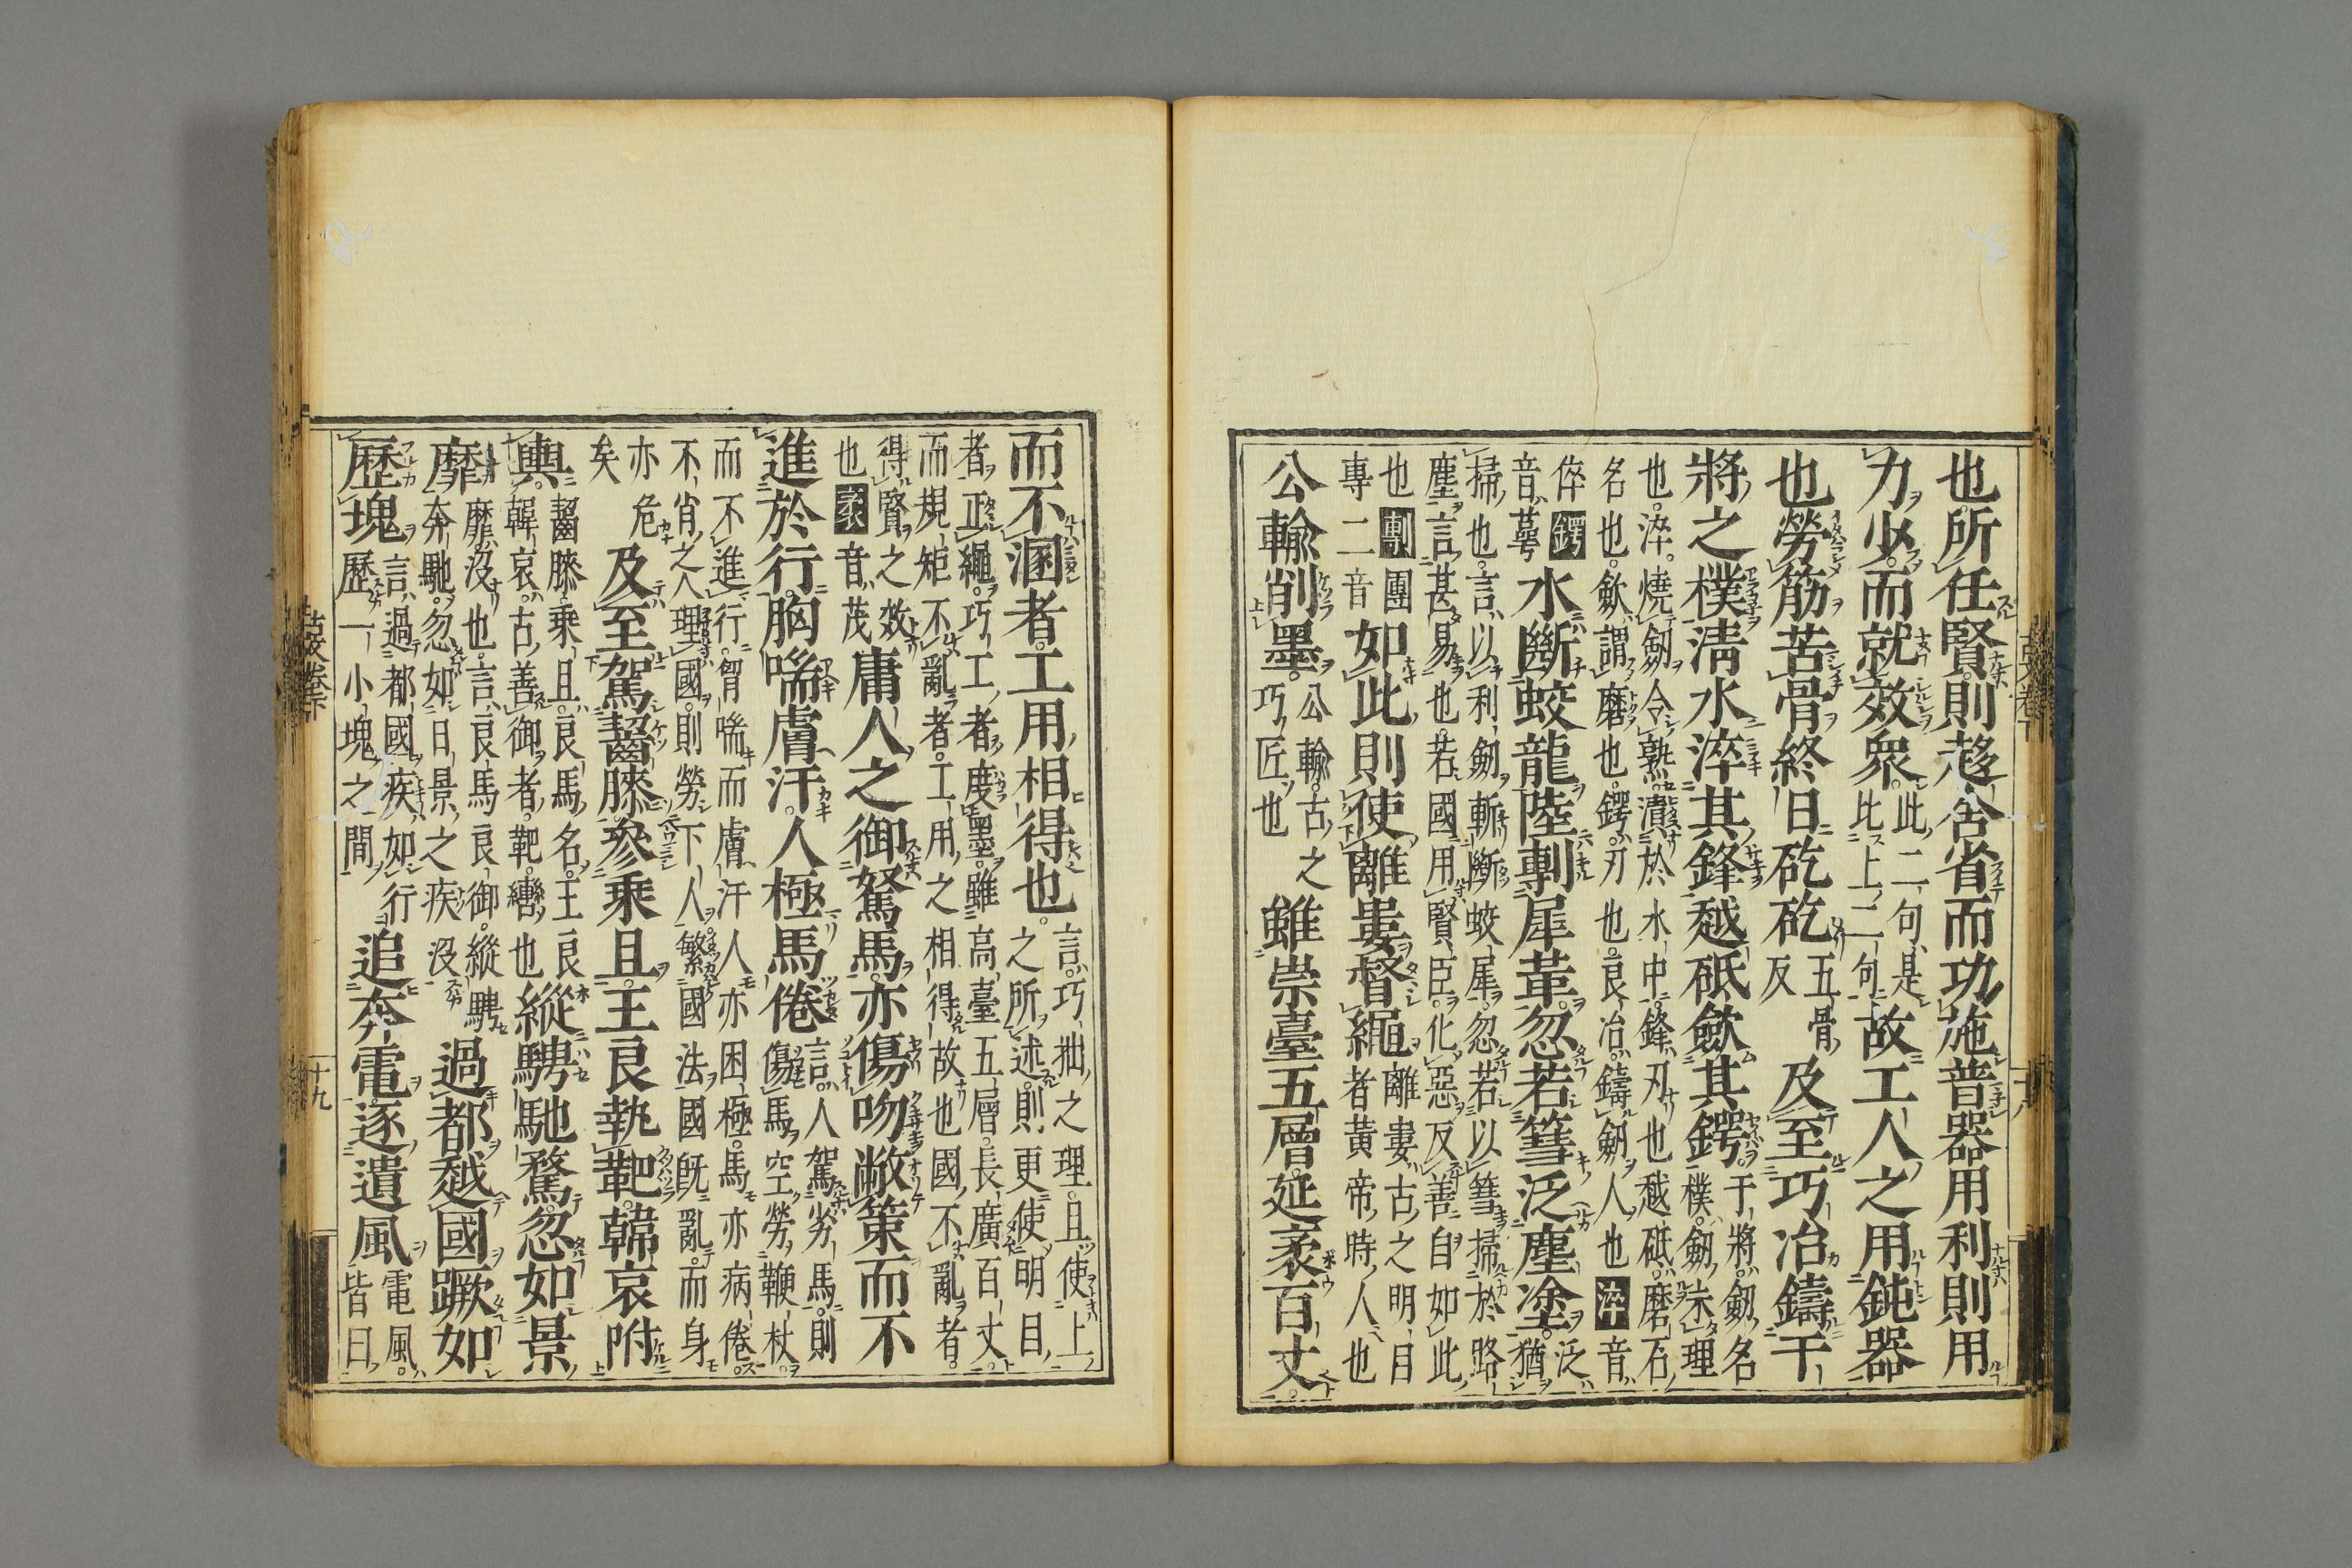 也所任賢則趍舍省而功施普器用利則用
力少而就效衆
此二句是
比上二句
故工人之用鈍器
也勞筋苦骨終日矻矻
五骨
反
及至巧冶鑄干
將之樸清水淬其鋒越砥斂其鍔
于將劔名
樸劔未理
也淬燒劔令熟瀆於水中鋒刃也越砥磨石
名也斂謂磨也鍔刃也良冶鑄劔人也淬音
倅鍔
音萼
水斷蛟龍陸剸犀革忽若篲泛塵塗
泛
猶
掃也言以利劔斬斷蛟犀忽若以篲掃於路
塵言甚易也若國用賢臣化惡反善自如此
也剸團
專二音
如此則使離婁督繩
離婁古之明目
者黃帝時人也
公輸削墨
公輸古之
巧匠也
雖崇臺五層延袤百丈
古文卷下
十八
而不溷者工用相得也
言巧拙之理且使上
之所述則更使明目
者正繩巧工者度墨雖高臺五層長廣百丈
而規矩不亂者工用之相得故也國不亂者
得賢之效
也袤音茂
庸人之御駑馬亦傷吻敝策而不
進於行胸喘膚汗人極馬倦
言人駕劣馬則
傷馬空勞鞭杖
而不進行胷喘而膚汗人亦困極馬亦病倦
不肖之人理國則勞下人繁國法國既亂而身
亦危
矣
及至駕齧膝參乘旦王良執靶韓哀附
輿
齧膝乘且良馬名王良
韓哀古善御者靶轡也
縱騁馳騖忽如景
靡
靡没也言良馬良御縱騁
奔馳忽如日景之疾没
過都越國蹶如
歷塊
言過都國疾如行
歷一小塊之間
追奔電逐遺風
電風
皆曰
古文卷下
十九